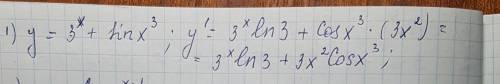 1) y = 3ˣ + sin x³ ; y' = 3ˣ ln 3 + cos x³ · (3x²) =
= 3ˣ ln 3 + 3x² Cos x³ ;